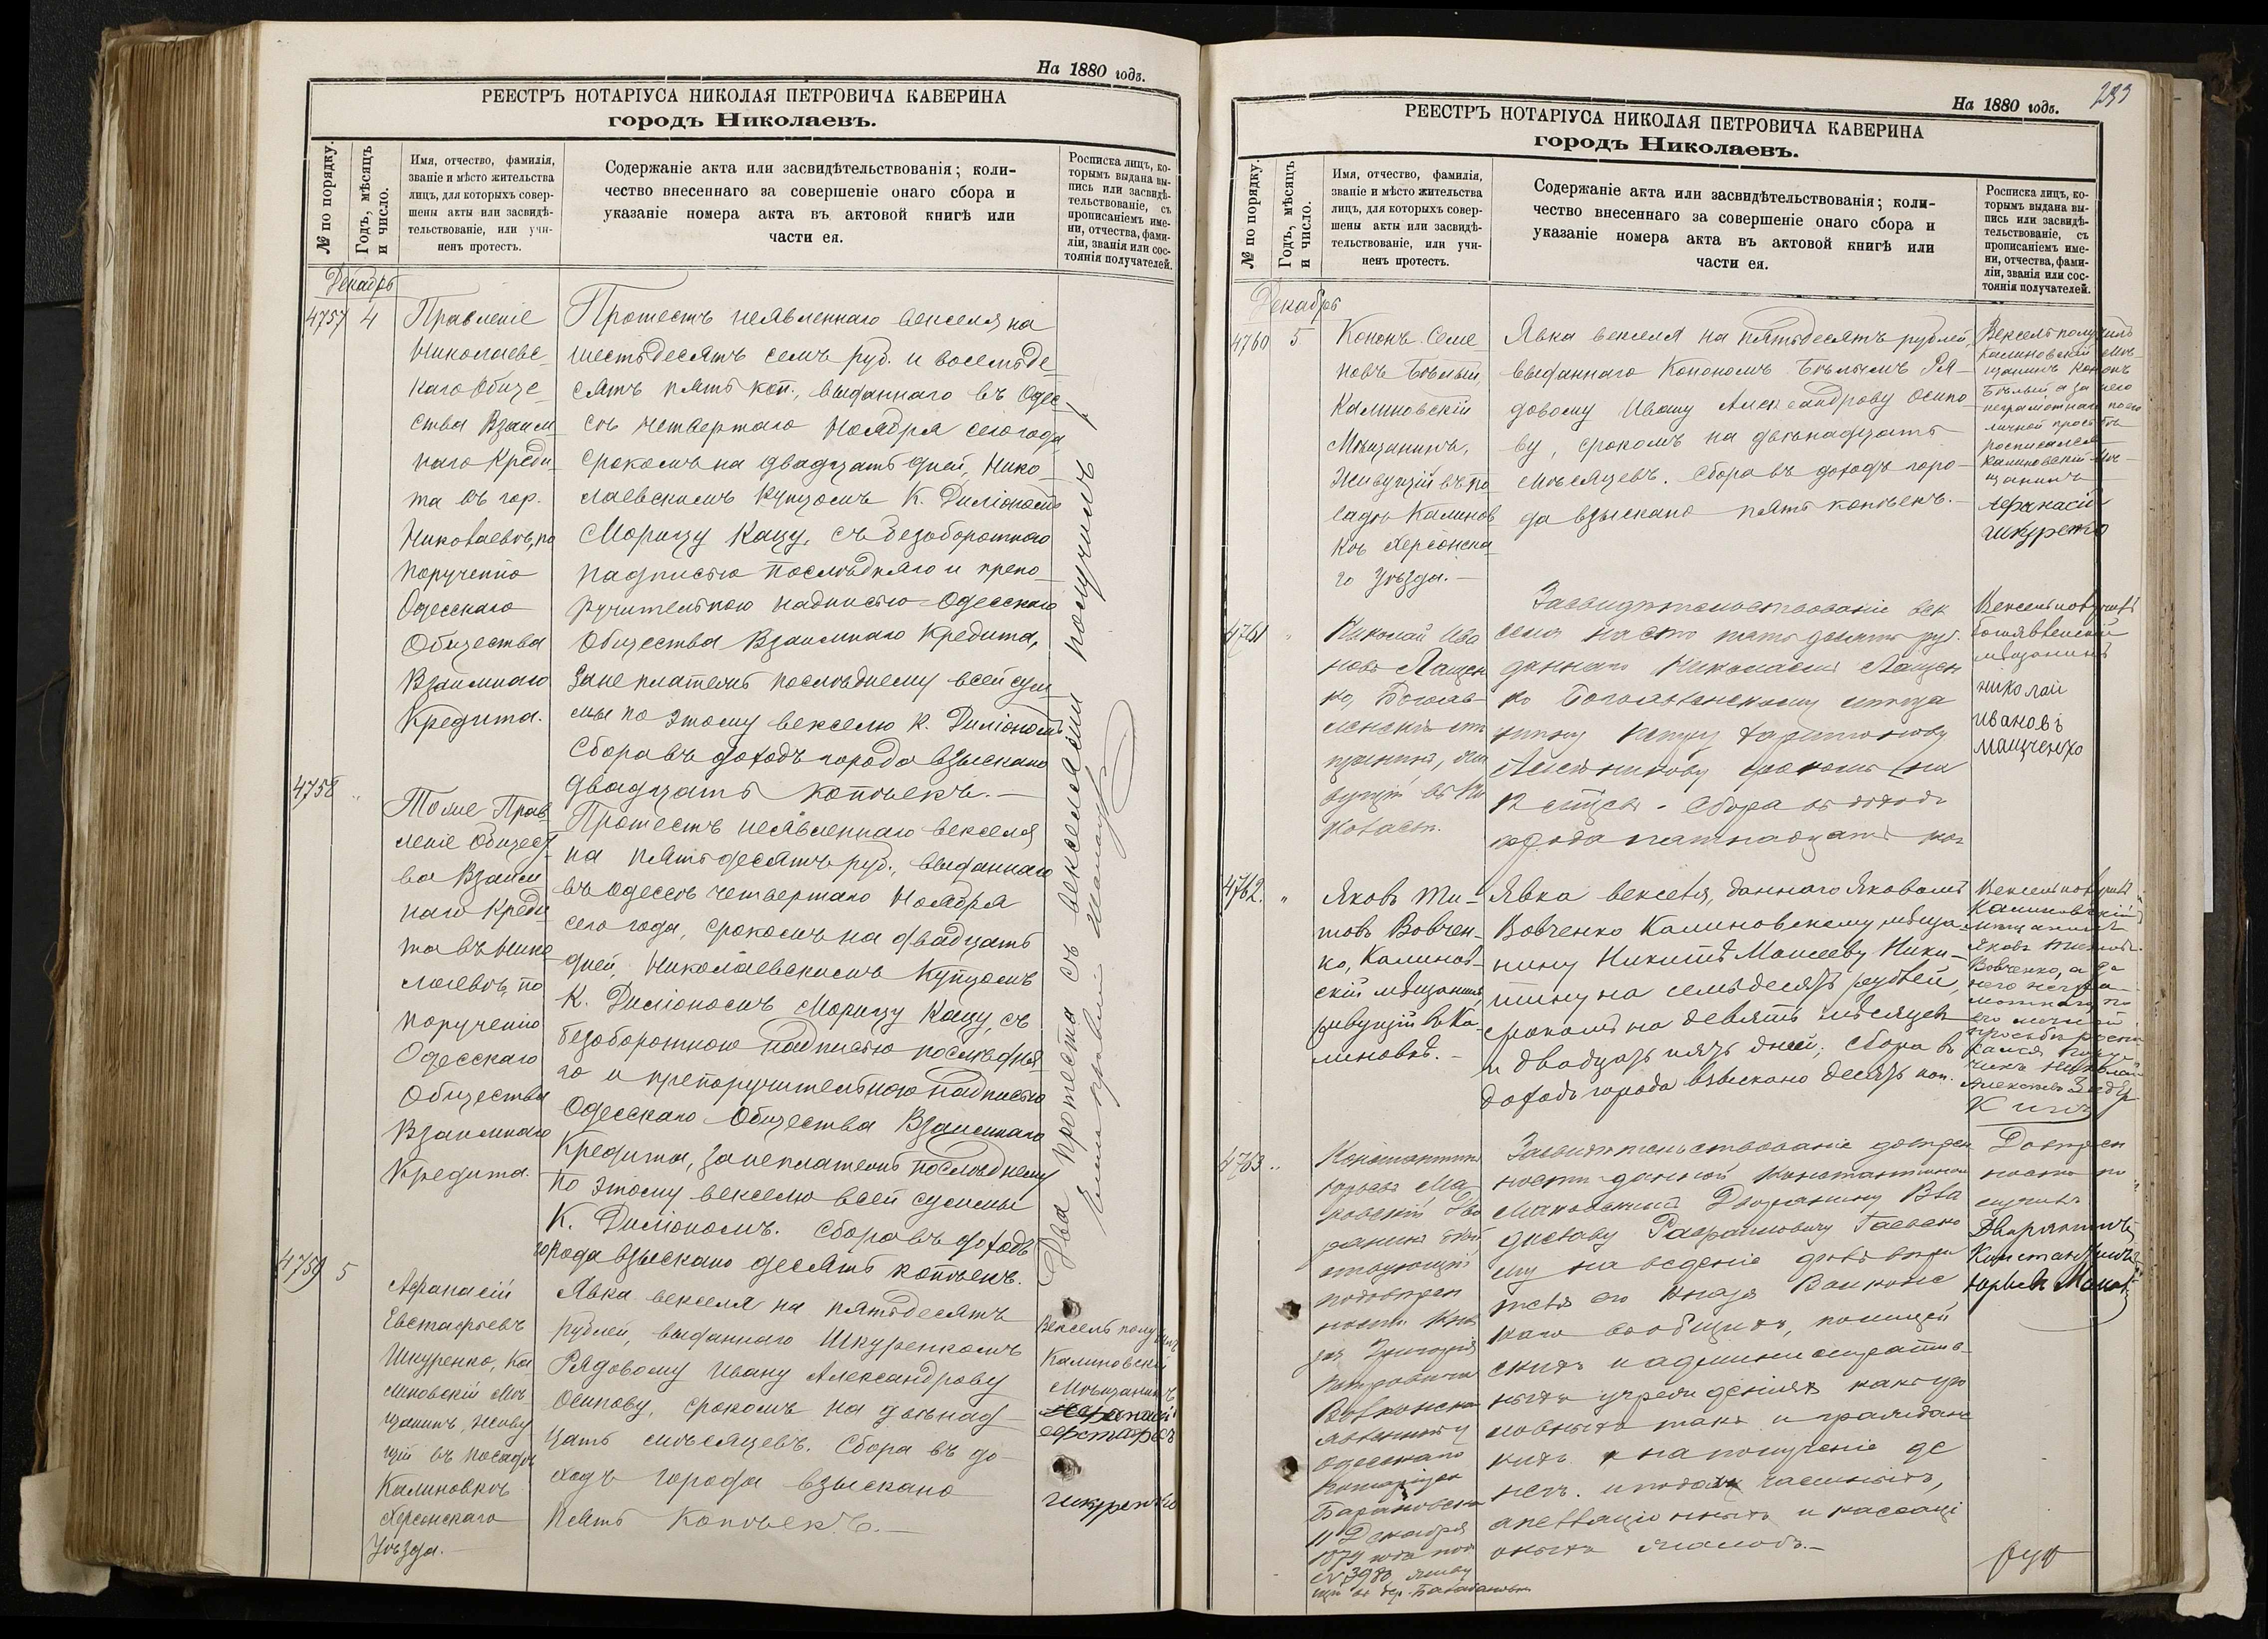 На 1880 годъ.
РЕЕСТРЪ НОТАРІУСА НИКОЛАЯ ПЕТРОВИЧА КАВЕРИНА
городъ Николаевъ.
№ по порядку.
Годъ, мѣсяцъ
и число.
Имя, отчество, фамилія,
званіе и мѣсто жительства
лицъ, для которыхъ совер-
шены акты или засвидѣ-
тельствованіе, или учи-
ненъ протестъ.
Содержаніе акта или засвидѣтельствованія; коли-
чество внесеннаго за совершеніе онаго сбора и
указаніе номера акта въ актовой книгѣ или
части ея.
Росписка лицъ, ко-
торымъ выдана вы-
пись или засвидѣ-
тельствованіе, съ
прописаніемъ име-
ни, отчества, фами-
ліи, званія или сос-
тоянія получателей.
Декабрь
4757 4
Правленіе
Николаевс-
каго Обще-
ства Взаим-
наго Креди-
та въ гор.
Николаевѣ, по
порученію
Одесскаго
Общества
Взаимнаго
Кредита.
Протестъ неявленнаго векселя на
шестьдесятъ семь руб. и восемьде
сятъ пять коп., выданнаго въ Одес-
сѣ четвертаго Ноября сего года,
срокомъ на двадцать дней, Нико-
лаевскимъ купцомъ К. Диліономъ
Морицу Кацу, съ безоборотною
надписью послѣдняго и препо-
ручительною надписью Одесскаго
Общества Взаимнаго Кредита,
за неплатежъ послѣднему всей сум
мы по этому векселю К. Диліономъ
Сбора въ доходъ города взыскано
двадцать копѣекъ.
4758 "
Тоже Прав
леніе Общест
ва Взаим
наго Креди
та въ Нико
лаевѣ, по
порученію
Одесскаго
Общества
Взаимнаго
Кредита.
Протестъ неявленнаго векселя
на пятьдесятъ руб., выданнаго
въ Одессѣ четвертаго Ноября
сего года, срокомъ на двадцать
дней, Николаевскимъ Купцомъ
К. Диліономъ Морицу Кацу, съ
безоборотною надписью послѣдня
го и препоручительною надписью
Одесскаго Общества Взаимнаго
Кредита, за неплатежъ послѣднему
по этому векселю всей суммы
К. Диліономъ. Сбора въ доходъ
города взыскано десять копѣекъ.
Два протеста съ векселями получилъ
4759 5
Афанасій
Евстафьевъ
Шкуренко, Ка
линовскій мѣ
щанинъ, живу
щій въ посадѣ
Калиновкѣ
Херсонскаго
Уѣзда.
Явка векселя на пятьдесятъ
рублей, выданнаго Шкуренкомъ
Рядовому Ивану Александрову
Осипову, срокомъ на двѣнад-
цать мѣсяцевъ. Сбора въ до-
ходъ города взыскано
пять копѣекъ.
Вексель получилъ
Калиновскій
Мѣщанинъ
шкуренко
На 1880 годъ.
РЕЕСТРЪ НОТАРІУСА НИКОЛАЯ ПЕТРОВИЧА КАВЕРИНА
городъ Николаевъ.
№ по порядку.
Годъ, мѣсяцъ
и число.
Имя, отчество, фамилія,
званіе и мѣсто жительства
лицъ, для которыхъ совер-
шены акты или засвидѣ-
тельствованіе, или учи-
ненъ протестъ.
Содержаніе акта или засвидѣтельствованія; коли-
чество внесеннаго за совершеніе онаго сбора и
указаніе номера акта въ актовой книгѣ или
части ея.
Росписка лицъ, ко-
торымъ выдана вы-
пись или засвидѣ-
тельствованіе, съ
прописаніемъ име-
ни, отчества, фами-
ліи, званія или сос-
тоянія получателей.
Декабрь
4760 5
Кононъ Семе
новъ Бѣлый,
Калиновскій
Мѣщанинъ,
Живущій въ по
садѣ Калинов
кѣ Херсонска
го Уѣзда.
Явка векселя на пятьдесятъ рублей,
выданнаго Конономъ Бѣлымъ Ря-
довому Ивану Александрову Осипо
ву, срокомъ на двѣнадцать
мѣсяцевъ. Сбора въ доходъ горо-
да взыскано пять копѣекъ.
Вексель получилъ
калиновскій мѣ-
щанинъ Кононъ
Бѣлый, а за него
неграмотнаго по его
личной просьбѣ
росписался
Калиновскій мѣ-
щанинъ
Афанасій
шкуренко
4761 "
Николай Ива
новъ Лащен
ко, Богояв-
ленскій мѣ
щанинъ, жи
вущій въ
Засвидѣтельствованіе век
селя на сто пятьдесятъ руб.
даннаго Николаемъ Лащен
ко Богоявленскому мѣща
нину Петру Харитонову
срокомъ на
12 мѣсяц. Сбора въ доходъ
города пятнадцать коп
Вексель получилъ
богоявленскій
мѣщанинъ
николай
ивановъ
4762. "
Яковъ Ти-
товъ Вовчен-
ко, Калинов-
скій мѣщанинъ,
живущій въ Ка-
линовкѣ.
Явка векселя, даннаго Яковомъ
Вовченко Калиновскому мѣща-
нину Никитѣ Моисееву Ники-
тину на семьдесятъ рублей,
срокомъ на девять мѣсяцевъ
и двадцать пять дней; сбора въ
доходъ города взыскано десять коп.
Вексель получилъ
Калиновскій
мѣщанинъ
Яковъ Титовъ
Вовченко, а за
него негра-
мотнаго, по
его личной
просьбѣ роспи
4763 "
Константинъ
Юрьевъ Ма-
ковскій, Дво
рянинъ, дѣй
ствующій
по довѣрен
ности Кня
зя Григорія
Петровича
Волконска
явленной у
одесскаго
Нотаріуса
Барановска
11 Декабря
1879 года под
№ 3980, живу
щій въ дер.
Засвидѣтельствованіе довѣрен
ности данной Константиномъ
Маковскимъ Дворянину Вла
диславу Рафаиловичу
ему на веденіе дѣлъ
его Князя Волконс
каго въ общихъ, полицей
скихъ и административ
ныхъ учрежденіяхъ какъ уго
ловныхъ такъ и граждан
кихъ и на полученіе де
негъ. и подачу частныхъ,
апелляціонныхъ и кассаці
онныхъ жалобъ.
Довѣрен
ность по
лучилъ
Дворянинъ
Константинъ
Юрьевъ Маков